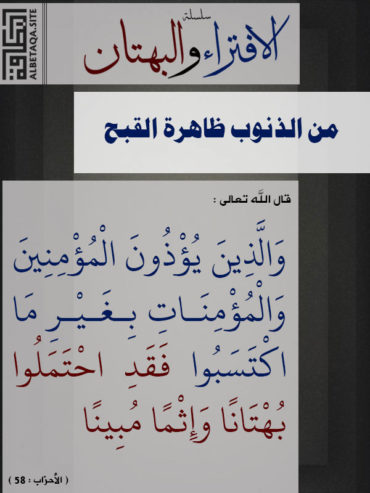 سلسلة
الافتراء والبهتان
البطاقة
ALBETAQA.SITE
من الذنوب ظاهرة القبح
قال الله تعالى :
وَالَّذِينَ يُؤْذُونَ الْمُؤْمِنِينَ
وَالْمُؤْمِنَاتِ بِغَيْرِ مَا
اكْتَسَبُوا فَقَدِ احْتَمَلُوا
بُهْتَانًا وَإِثْمًا مُبِينًا
( الأحزاب : 58 )